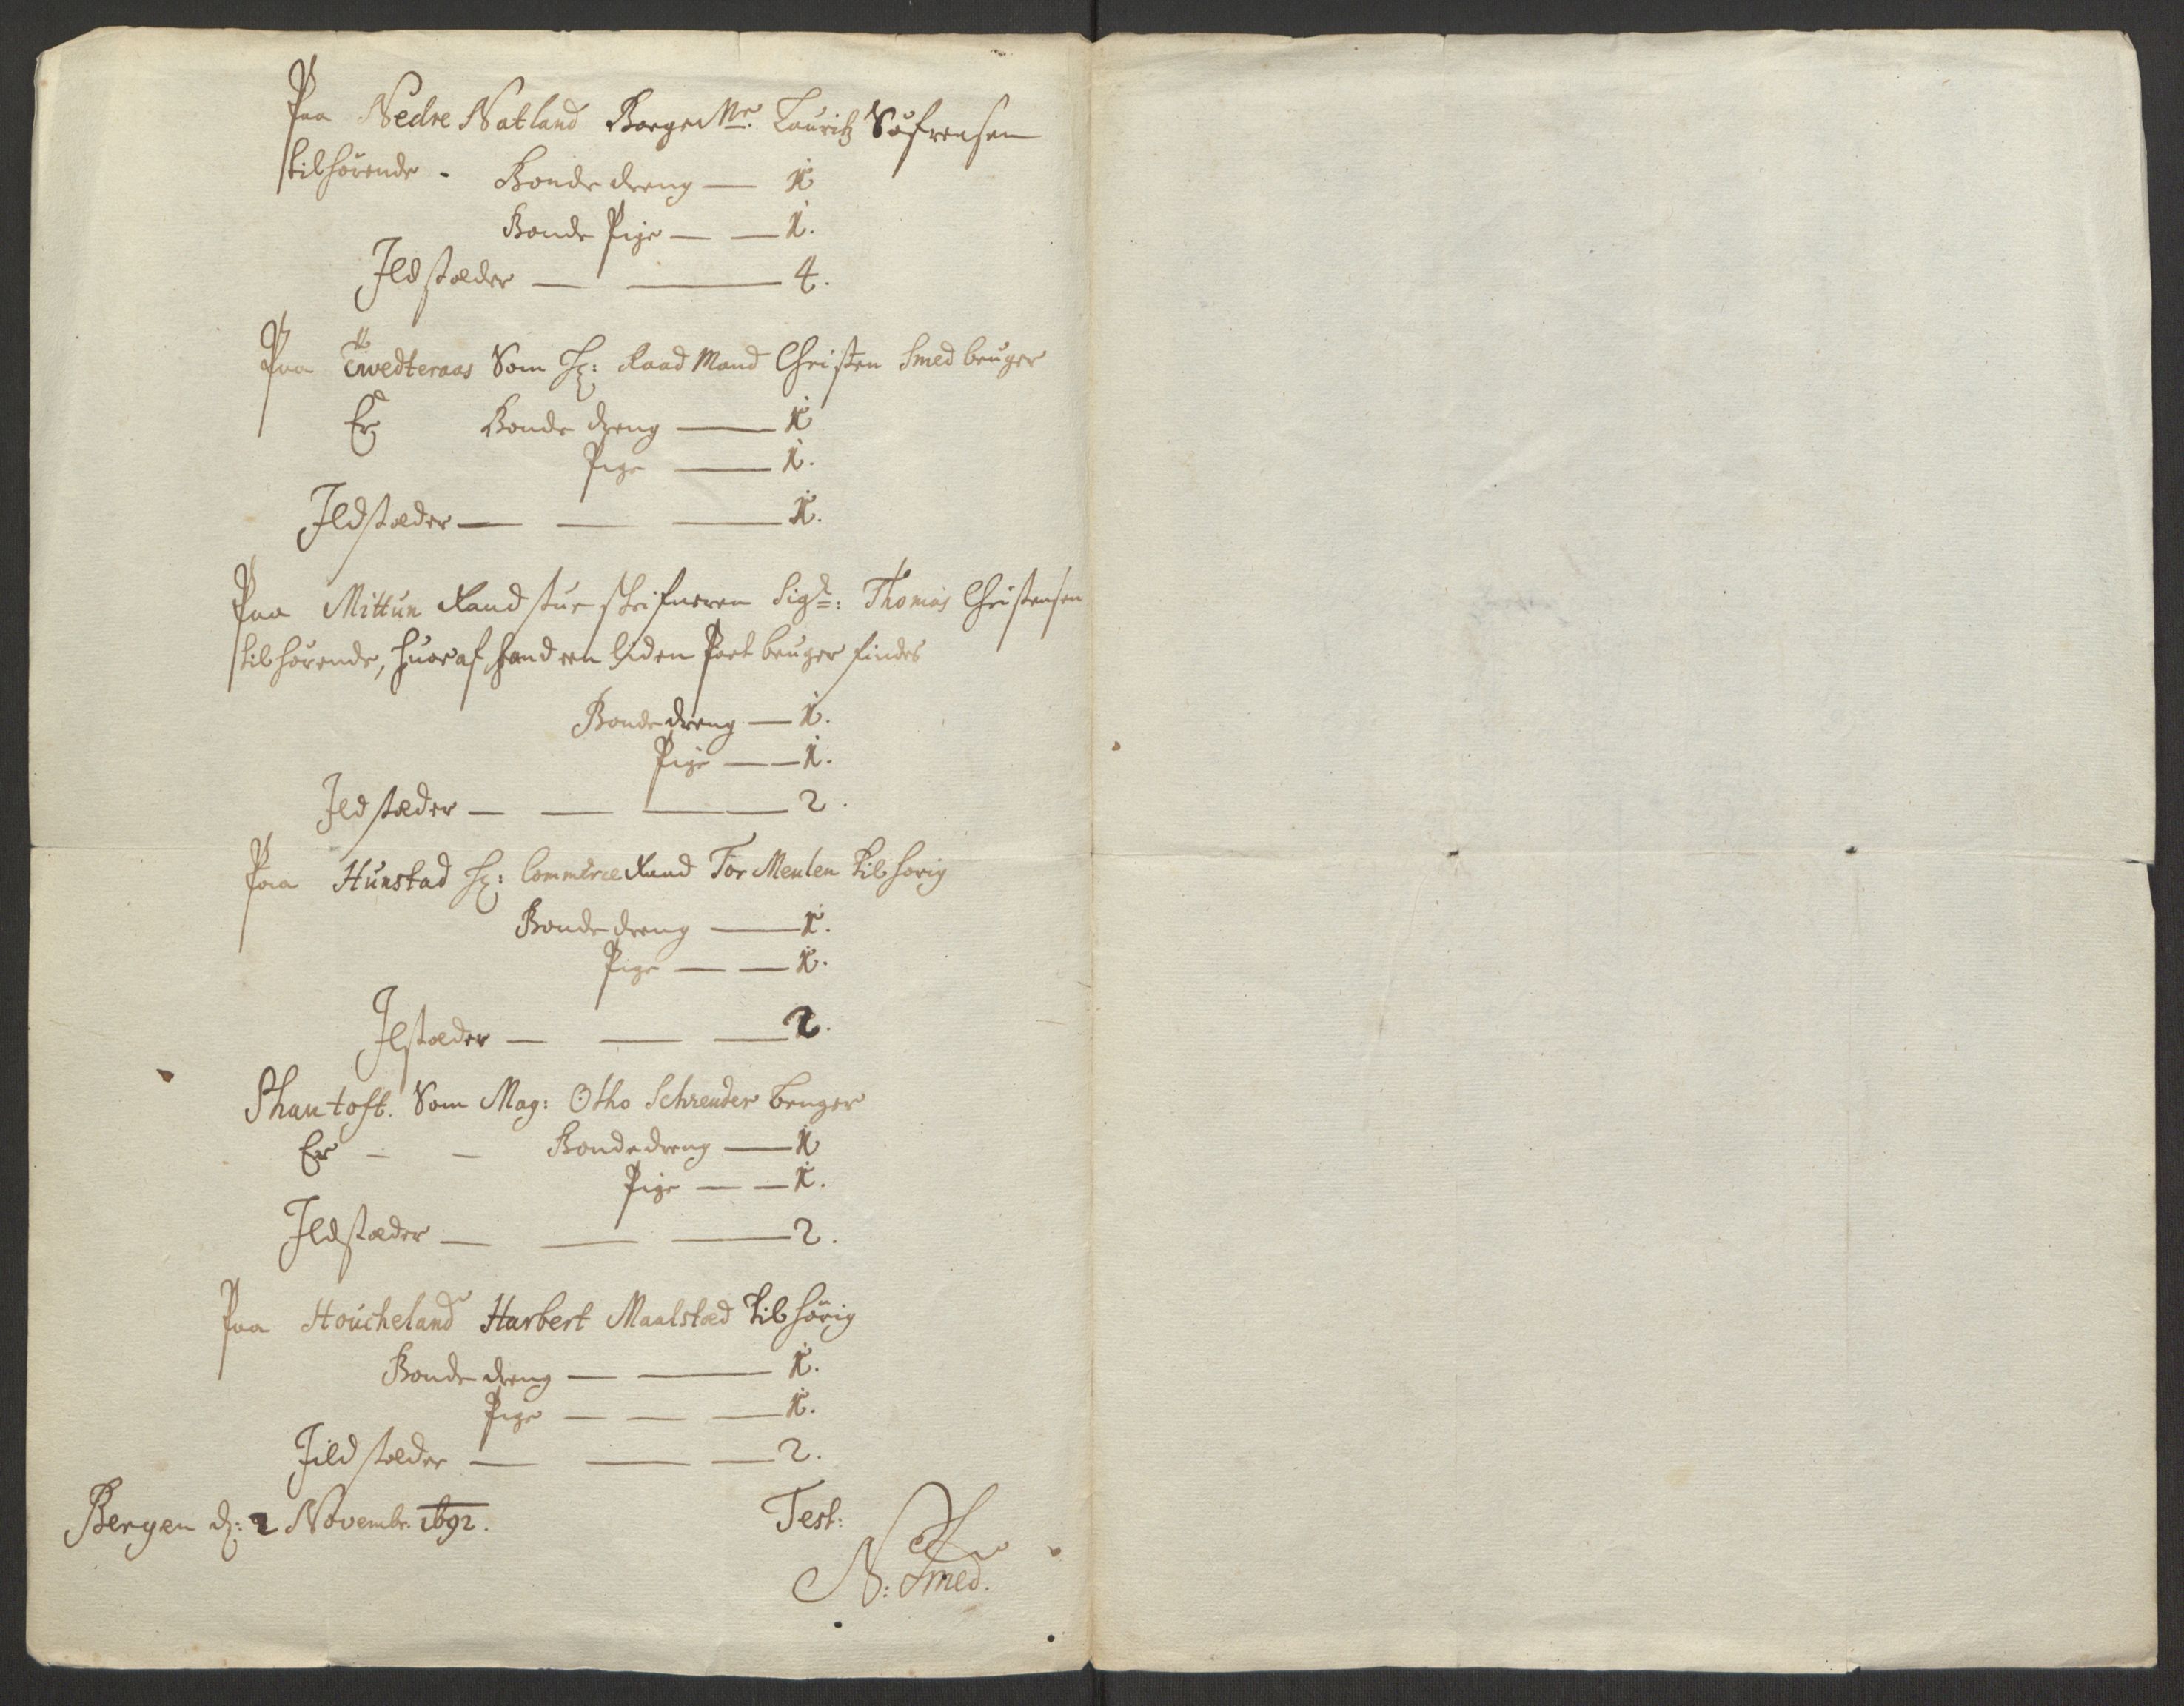 Paa Nedre Natland BorgeMr. Lauritz Søfrensen
tilhørende. Bonde dreng — 1
Bonde Pige — — 1.
Ildstæder — — 4.
Paa Tvedteraas Som Hr: Raad Mand Christen Smed bruger
Er Bonde dreng — 1
Pige — 1.
Ildstæder — — — 1.
Paa Mittun Raadstue skrifueren Sigr: Thomas Christensen
tilhørende, huoraf hand een liden Part bruger findes
Bonde dreng — 1.
Pige — — 1.
Ildstæder — — — — 2.
Paa Hunstad Hr: Commerce Raad Tor Meulen tilhørig
Bonde dreng — 1.
Pige — — 1.
Ilstæder — — — 2.
Shantoft. Som Mag: Otho Schreuder bruger
Er — — Bonde dreng — 1
Pige — — 1.
Ildstæder — — — 2.
Paa Houcheland Harbert Maalstæd tilhørig
Bonde dreng — — 1.
Pige — — — 1.
Jildstæder — — — 2.
Bergen d: 2 Novembr. 1692. Test:
N: Smed.